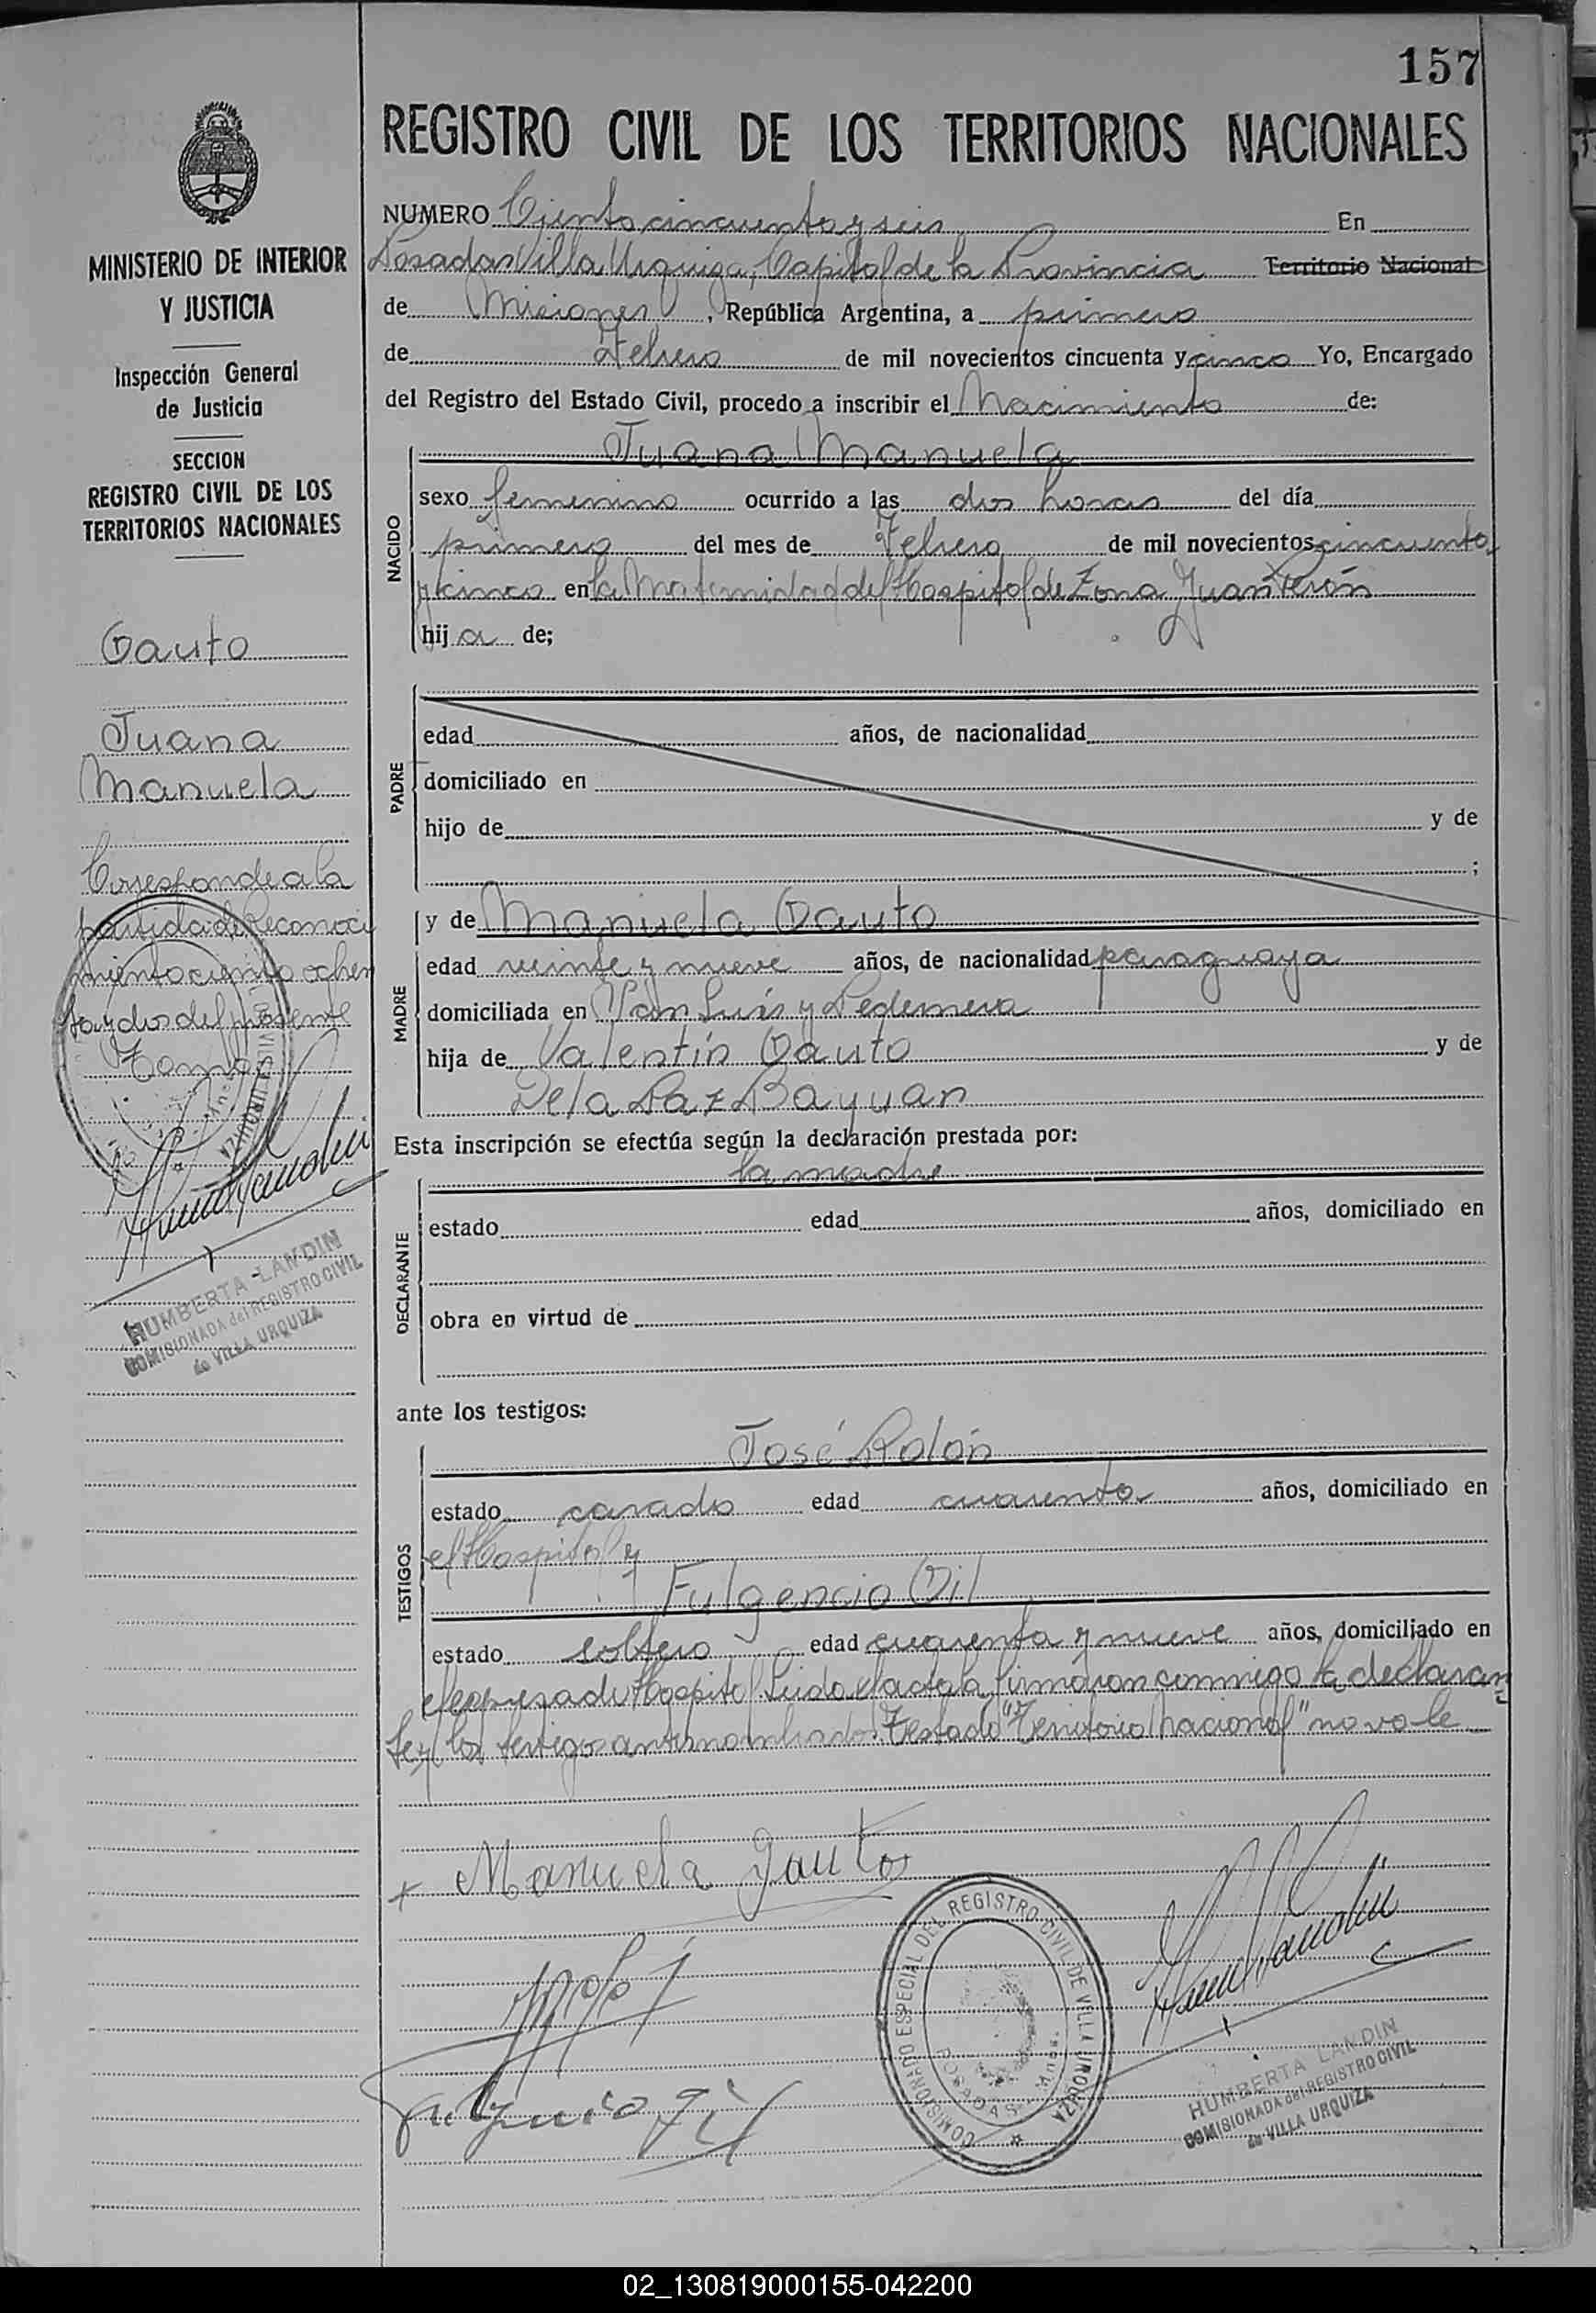 157
REGISTRO CIVIL DE LOS TERRITORIOS NACIONALES
MINISTERIO DE INTERIOR
Y JUSTICIA
Inspección General
de Justicia
SECCION
REGISTRO CIVIL DE LOS
TERRITORIOS NACIONALES
Gauto
Juana
Manuela
Corresponde a la
partida de Reconoci
miento ciento ochen
ta y dos del presente
Tomo
HUMBERTA LANDIN
COMISIONADA del REGISTRO CIVIL
de VILLA URQUIZA
NUMERO Ciento cincuenta y seis En
Posadas Villa Urquiza, Capital de la Provincia Territorio Nacional
de Misiones, República Argentina, a primero
de Febrero de mil novecientos cincuenta y cinco Yo, Encargado
del Registro del Estado Civil, procedo a inscribir el Nacimiento de:
Juana Manuela
NACIDO
sexo femenino ocurrido a las dos horas del día
primero del mes de Febrero de mil novecientos cincuenta
y cinco en la Maternidad del Hospital de Zona Juan Perón
hija de;
PADRE
edad años, de nacionalidad
domiciliado en
hijo de y de
;
y de Manuela Gauto
MADRE
edad veinte y nueve años, de nacionalidad paraguaya
domiciliada en San Luis y Pedernera
hija de Valentín Gauto y de
De la Paz Bayuan
Esta inscripción se efectúa según la declaración prestada por:
la madre
DECLARANTE
estado edad años, domiciliado en
obra en virtud de
ante los testigos:
José Rolón
TESTIGOS
estado casado edad cuarenta años, domiciliado en
el Hospital y
Fulgencio Gil
estado soltero edad cuarenta y nueve años, domiciliado en
el expresado Hospital Leida el acta la firmaron conmigo la declaran
te y los testigos antes nombrados Testado "Territorio Nacional" no vale
x Manuela Gauto
Fulgencio Gil
COMISIONADO ESPECIAL DEL REGISTRO CIVIL DE VILLA URQUIZA
POSADAS
HUMBERTA LANDIN
COMISIONADA del REGISTRO CIVIL
de VILLA URQUIZA
02_130819000155-042200